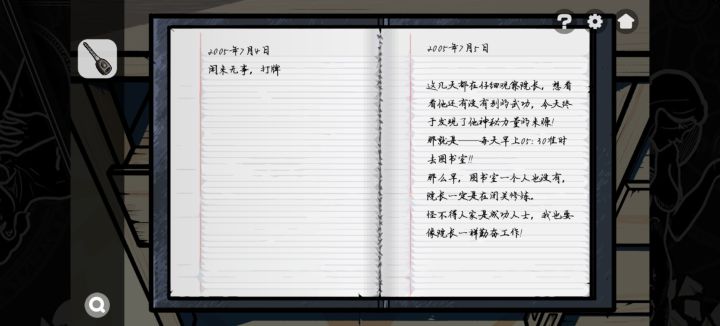 2005年7月4日
闲来无事，打牌
2005年7月5日
这几天都在仔细观察院长，想看
看他还有没有别的武功，今天终
于发现了他神秘力量的来源！
那就是——每天早上05:30准时
去图书室！！
那么早，图书室一个人也没有，
院长一定是在闭关修炼。
怪不得人家是成功人士，我也要
像院长一样勤奋工作！